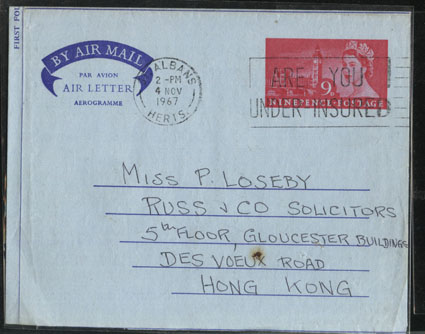 FIRST FOL
BY AIR MAIL
PAR AVION
AIR LETTER
AEROGRAMME
ALBANS
2 - PM
4 NOV
1967
HERTS.
9D
NINEPENCE POSTAGE
ARE YOU
UNDER INSURED
MISS P. LOSEBY
RUSS & CO SOLICITORS
5th FLOOR, GLOUCESTER BUILDINGS
DES VOEUX ROAD
HONG KONG